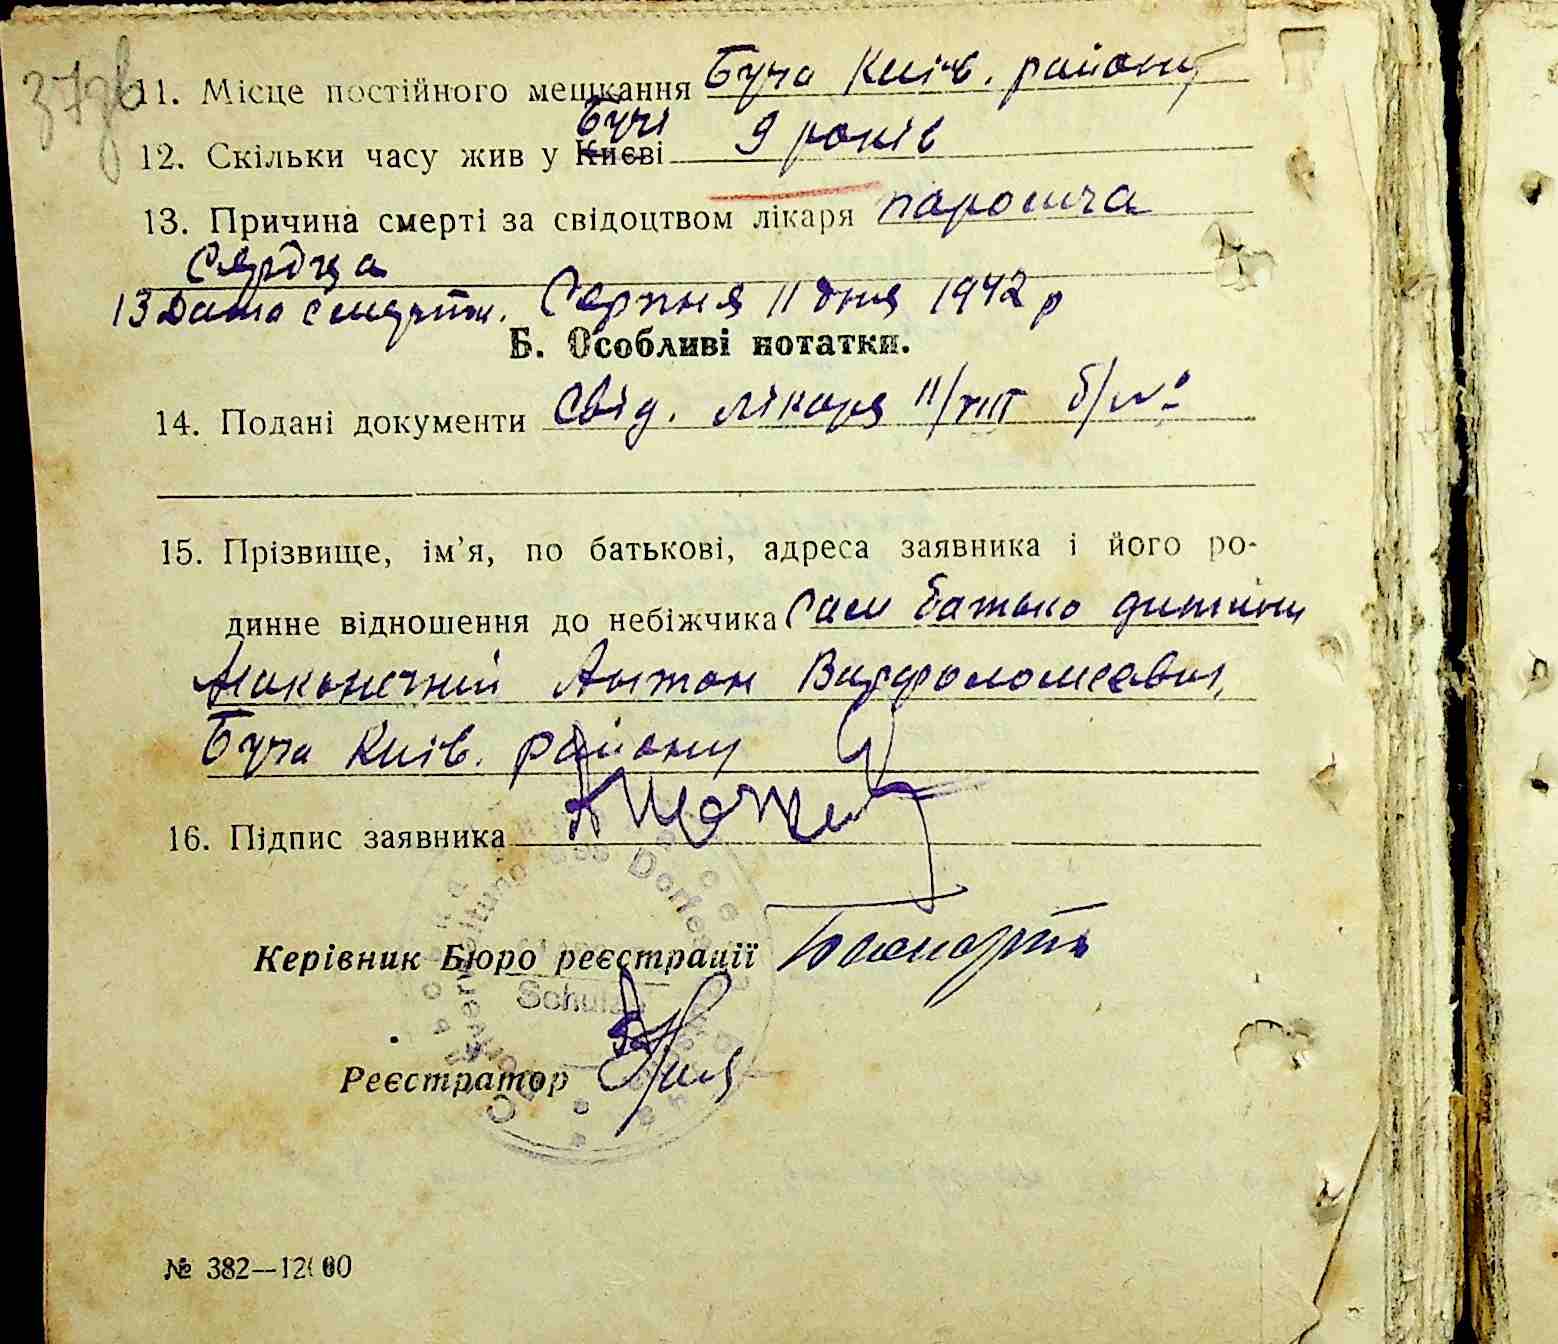 37зв
11. Місце постійного мешкання Буча Київ. району
Бучі
12. Скільки часу жив у Києві 9 років
13. Причина смерті за свідоцтвом лікаря паролича
Сердца
13 Дата смерти. Серпня 11 дня 1942 р
Б. Особливі нотатки.
14. Подані документи Свід. лікаря 11/VIII б/№
15. Прізвище, ім’я, по батькові, адреса заявника і його ро-
динне відношення до небіжчика Сам батько дитини
Маконечний Антон Варфоломеевич,
Буча Київ. району
16. Підпис заявника
Керівник Бюро реєстрації
Schulze
Реєстратор
№ 382—12000